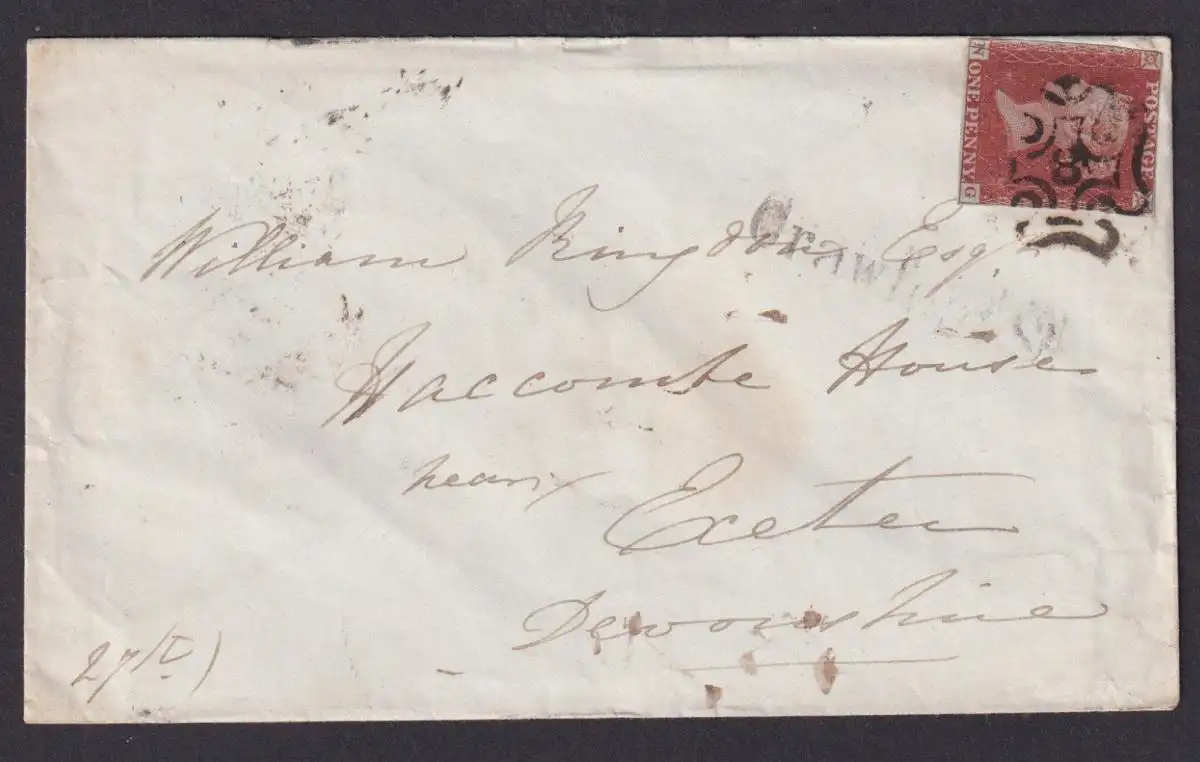 POSTAGE
ONE PENNY.
N G
8
William Kingdon Esqr
Haccombe House
near
Exeter
Devonshire
27th)